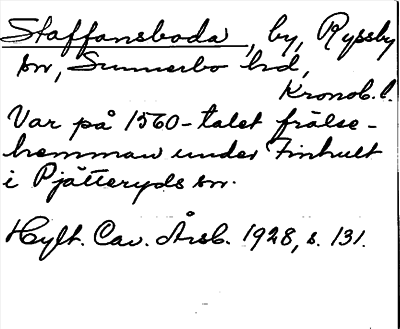 Staffansboda, by, Ryssby
sn, Sunnerbo hd,
Kronob. l.
Var på 1560-talet frälse-
hemman under Finhult
i Pjätteryds sn.
Hylt. Cav. Årsb. 1928, s. 131.